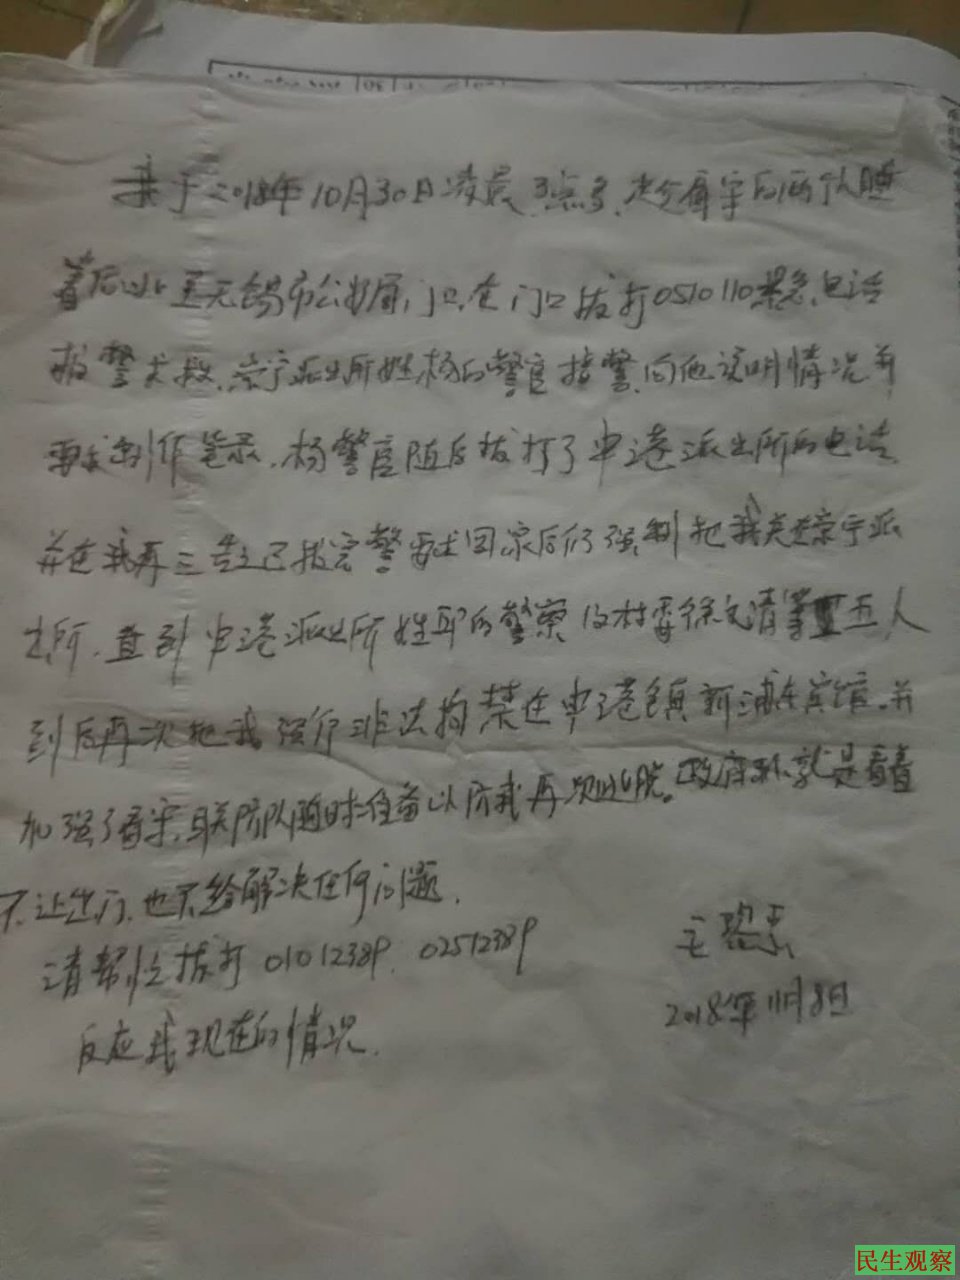 基于2018年10月30日凌晨3点多,决令看守的两个人睡
着后 至无锡市公安局门口,在门口拔打0510110紧急电话
报警求救,崇宁派出所姓杨的警官接警,向他说明情况并
要求制作笔录,杨警官随后拔打了申港派出所的电话
并在我再三告之已报完警要求回家后仍强制把我关进崇宁派
出所,直到申港派出所姓耶的警察及村委徐文清等五人
到后再次把我强行非法拘禁在申港镇新浦东宾馆。并
加强了看守,联防队随时准备以防我再次逃脱。政府 就是看着
不让出门,也不给解决任何问题,
请帮忙拔打01012389、02512389
反应我现在的情况,
2018年11月8日
民生观察